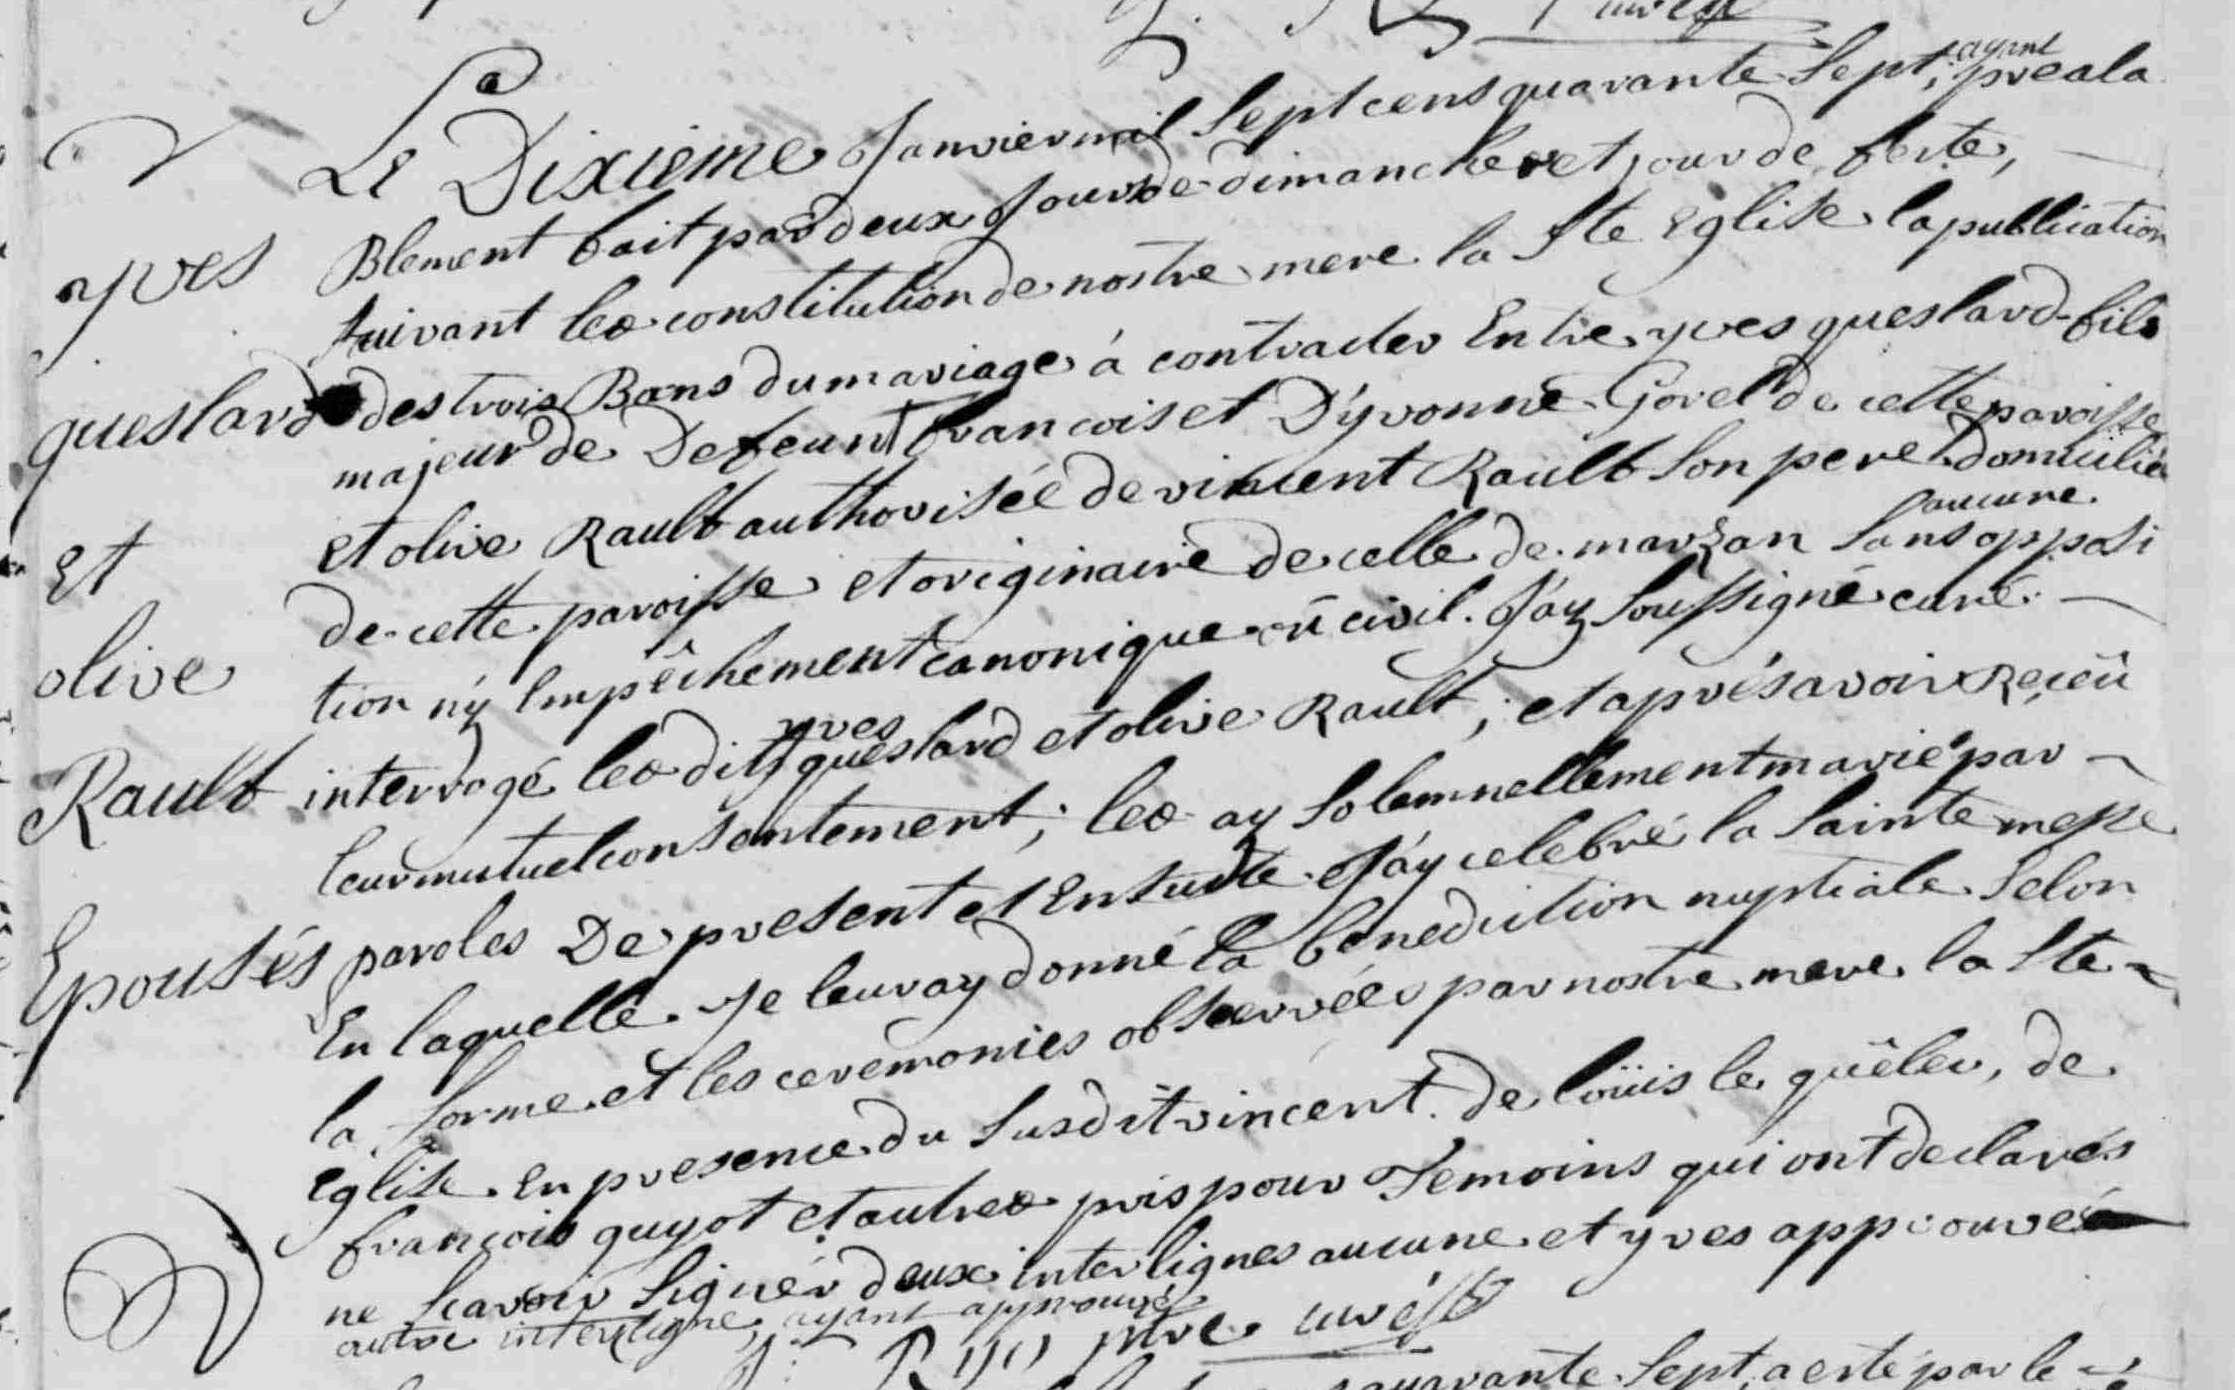 yves
queslard
Et
olive
Rault
Epousés
Le Dixieme Janvier mil Sept cens quarante Sept, ayant preala
Blement fait par deux Jours de dimanche et jour de feste,
Suivant les constitution de nostre mere la Ste Eglise la publication
des trois Bans du mariage à contracter Entre yves queslard fils
majeur de Defeunt francois et D'yvonne Gorel de cette paroisse
et olive Rault authorisée de vincent Rault Son pere domiciliée
de cette paroisse et originaire de celle de marzan Sans aucune opposi
tion n'y Empêchement canonique n'y civil. J'ay Soussigné curé
interrogé les dits yves queslard et olive Rault; et aprés avoir Reçeû
leur mutuel consentement; les ay Solemnellement marié par
paroles De present et Ensuite J'ay celebré la Sainte messe
En laquelle Je leur ay donné la benediction nuptiale Selon
la forme et les ceremonies observées par nostre mere la Ste
Eglise. En presence du Susdit vincent. de loüis le quêler, de
françois guyot et autres pris pour Temoins qui ont declarés
ne Scavoir Signer deux interlignes aucune et yves approuvés
autre interligne, ayant approuvé
ptre curé
quarante Sept, a esté par le